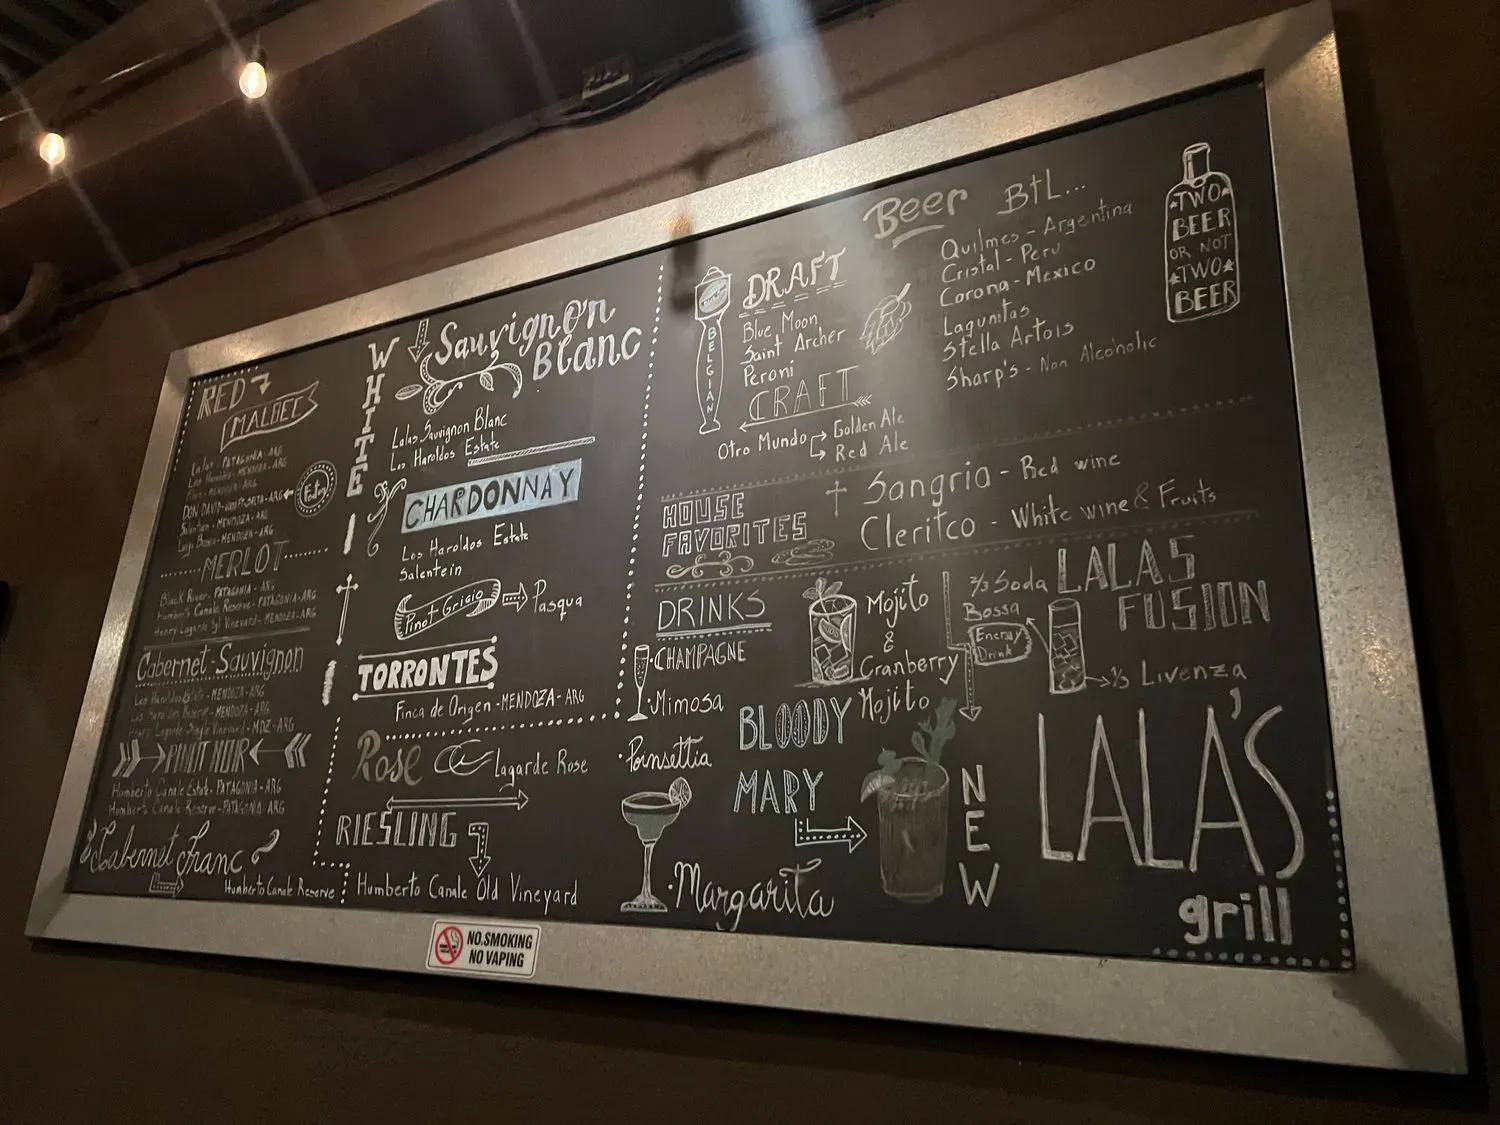 RED
MALBEC
Lalas - PATAGONIA - ARG
Los Haroldos - MENDOZA - ARG
MENDOZA - ARG
DON DAVID SALTA - ARG
Salentein - MENDOZA - ARG
Luigi Bosca - MENDOZA - ARG
MERLOT
Black River - PATAGONIA - ARG
Humberto Canale Reserve - PATAGONIA - ARG
Henry Lagarde Sgl Vineyard - MENDOZA - ARG
Cabernet-Sauvignon
Los Haroldos Estate - MENDOZA - ARG
Los Haroldos Reserve - MENDOZA - ARG
Henry Lagarde Single Vineyard - MDZ - ARG
PINOT NOIR
Humberto Canale Estate - PATAGONIA - ARG
Humberto Canale Reserve - PATAGONIA - ARG
Cabernet Franc
Humberto Canale Reserve
WHITE
Sauvignon
Blanc
Lalas Sauvignon Blanc
Los Haroldos Estate
CHARDONNAY
Los Haroldos Estate
Salentein
Pinot Grigio
Pasqua
TORRONTES
Finca de Origen - MENDOZA - ARG
Rose
Lagarde Rose
RIESLING
Humberto Canale Old Vineyard
Beer
BELGIAN
DRAFT
Blue Moon
Saint Archer
Peroni
CRAFT
Otro Mundo
Golden Ale
Red Ale
BtL...
Quilmes - Argentina
Cristal - Peru
Corona - Mexico
Lagunitas
Stella Artois
Sharp's - Non Alcoholic
TWO
BEER
OR NOT
TWO
BEER
HOUSE
FAVORITES
Sangria - Red wine
Cleritco - White wine & Fruits
DRINKS
CHAMPAGNE
Mimosa
Poinsettia
Margarita
Mojito
&
Cranberry
Mojito
BLOODY
MARY
NEW
LALAS
FUSION
2/3 Soda
Bossa
Energy
Drink
1/3 Livenza
LALA'S
grill
NO SMOKING
NO VAPING